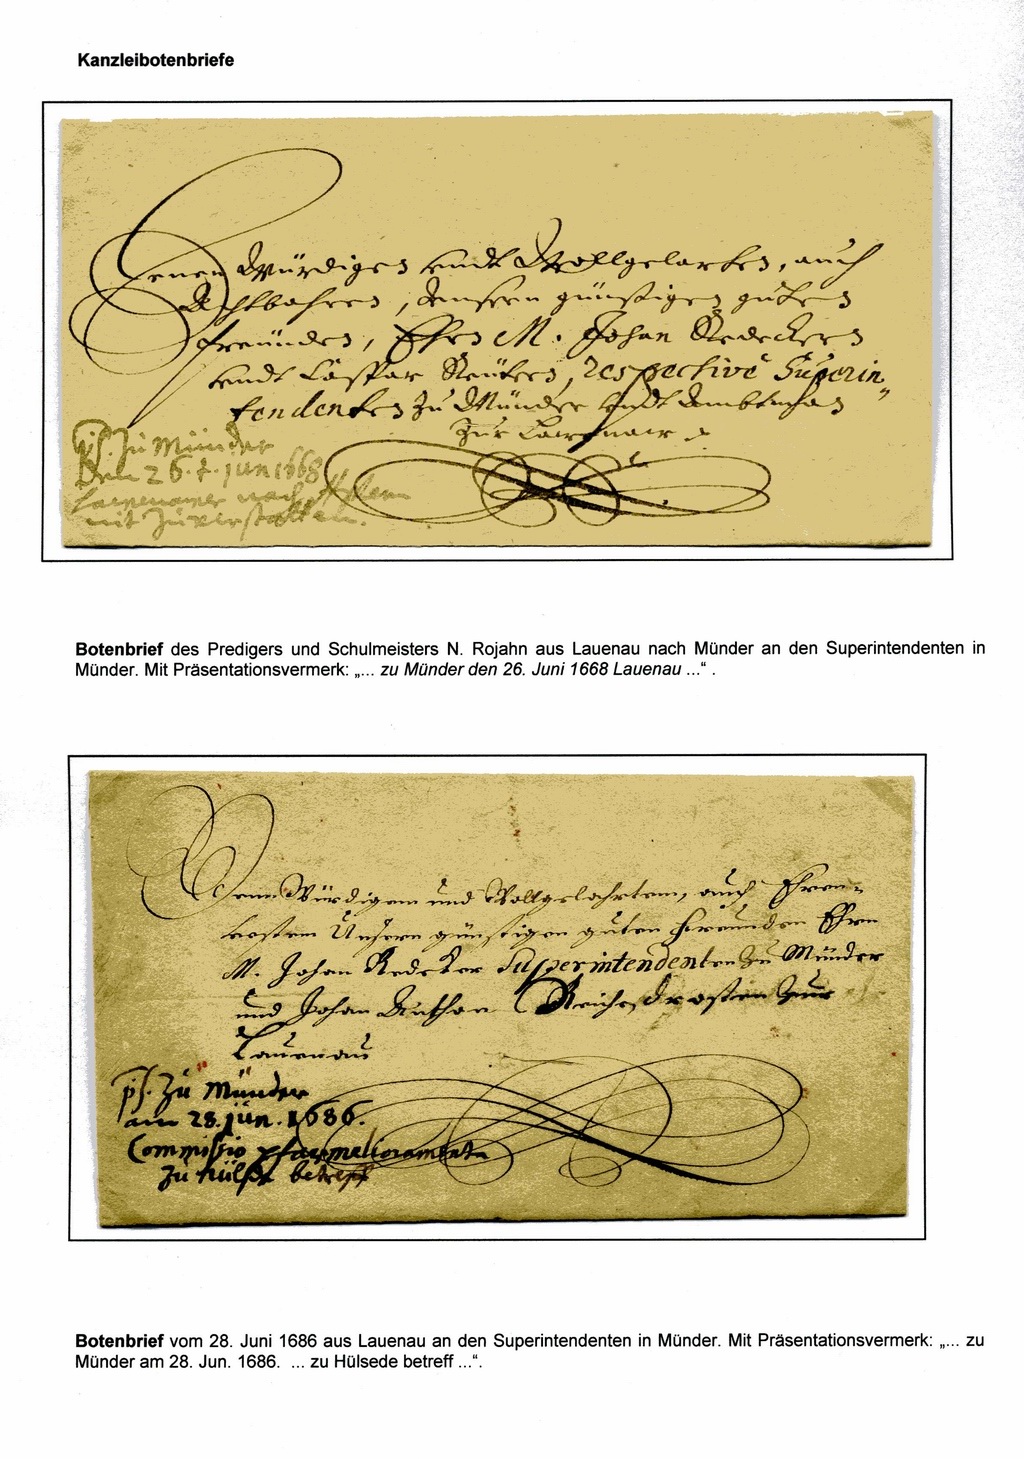 Kanzleibotenbriefe
Denen Würdigen undt Wollgelarten, auch
Achtbahren, Unsern günstigen guten
freünden, Ehrn M. Johan Redeckern
undt Caspar Reütern, respective Superin„
tendenten zu Münder undt Ambtman
zur Lawenaw
ps. zu Münder
Den 26. Jun 1668
Lawenawer nach
mit
Botenbrief des Predigers und Schulmeisters N. Rojahn aus Lauenau nach Münder an den Superintendenten in
Münder. Mit Präsentationsvermerk: „... zu Münder den 26. Juni 1668 Lauenau ...“ .
Denn Würdigem und Wollgelahrtem, auch Ehren-
vestem Unsern günstigen guten freunden Ehrn
M. Johan Redeker Superintendenten zu Münder
und Johan zur
Lauenau
ps. zu Münder
am 28. jun. 1686.
Commissio
zu Hülse betreff
Botenbrief vom 28. Juni 1686 aus Lauenau an den Superintendenten in Münder. Mit Präsentationsvermerk: „... zu
Münder am 28. Jun. 1686. ... zu Hülsede betreff ...“.